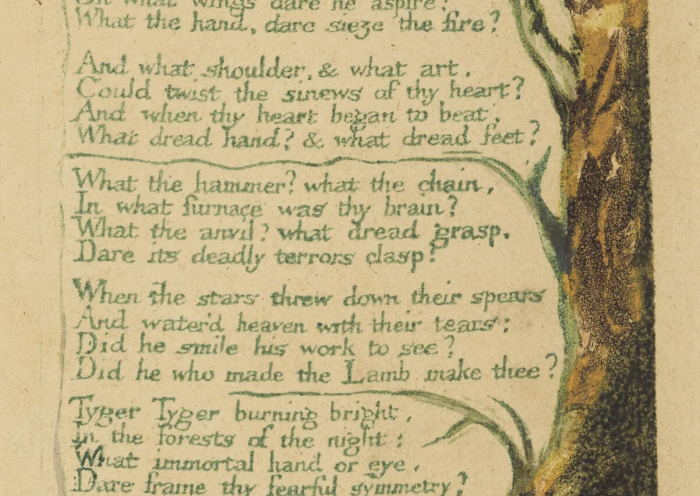 On what wings dare he aspire?
What the hand, dare sieze the fire?
And what shoulder, & what art,
Could twist the sinews of thy heart?
And when thy heart began to beat,
What dread hand? & what dread feet?
What the hammer? what the chain,
In what furnace was thy brain?
What the anvil? what dread grasp,
Dare its deadly terrors clasp?
When the stars threw down their spears
And water'd heaven with their tears:
Did he smile his work to see?
Did he who made the Lamb make thee?
Tyger Tyger burning bright,
In the forests of the night:
What immortal hand or eye,
Dare frame thy fearful symmetry?